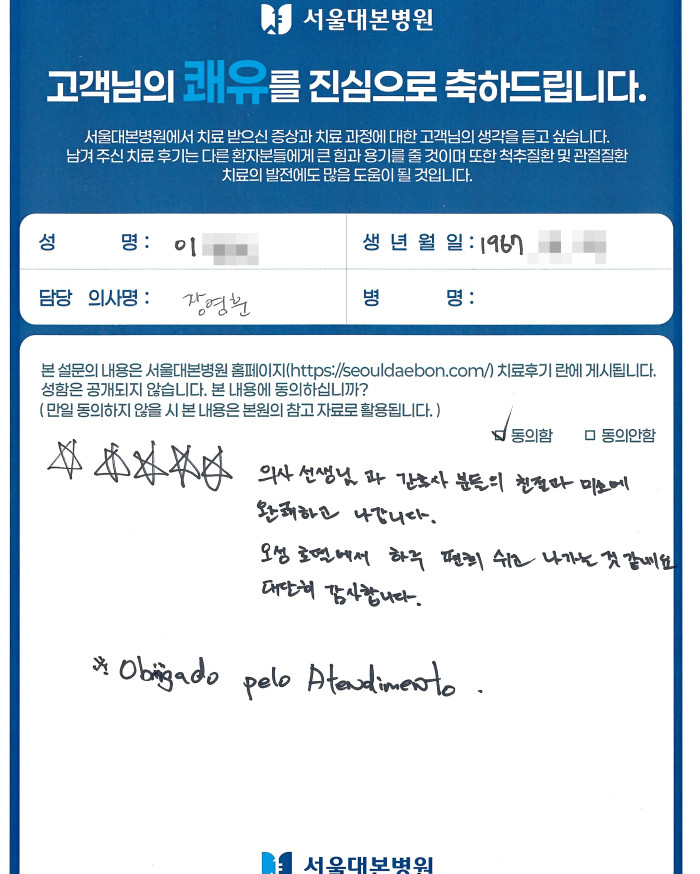 서울대본병원
고객님의 쾌유를 진심으로 축하드립니다.
서울대본병원에서 치료 받으신 증상과 치료 과정에 대한 고객님의 생각을 듣고 싶습니다.
남겨 주신 치료 후기는 다른 환자분들에게 큰 힘과 용기를 줄 것이며 또한 척추질환 및 관절질환
치료의 발전에도 많음 도움이 될 것입니다.
성 명 : 이
생 년 월 일 : 1967
담당 의사명 : 장영훈
병 명 :
본 설문의 내용은 서울대본병원 홈페이지(https://seouldaebon.com/) 치료후기 란에 게시됩니다.
성함은 공개되지 않습니다. 본 내용에 동의하십니까?
( 만일 동의하지 않을 시 본 내용은 본원의 참고 자료로 활용됩니다. )
동의함 동의안함
의사 선생님 과 간호사 분들의 친절과 미소에
완쾌하고 나갑니다.
오성 호텔에서 하루 편히 쉬고 나가는 것 같네요
대단히 감사합니다.
※ Obrigado pelo Atendimento .
서울대본병원